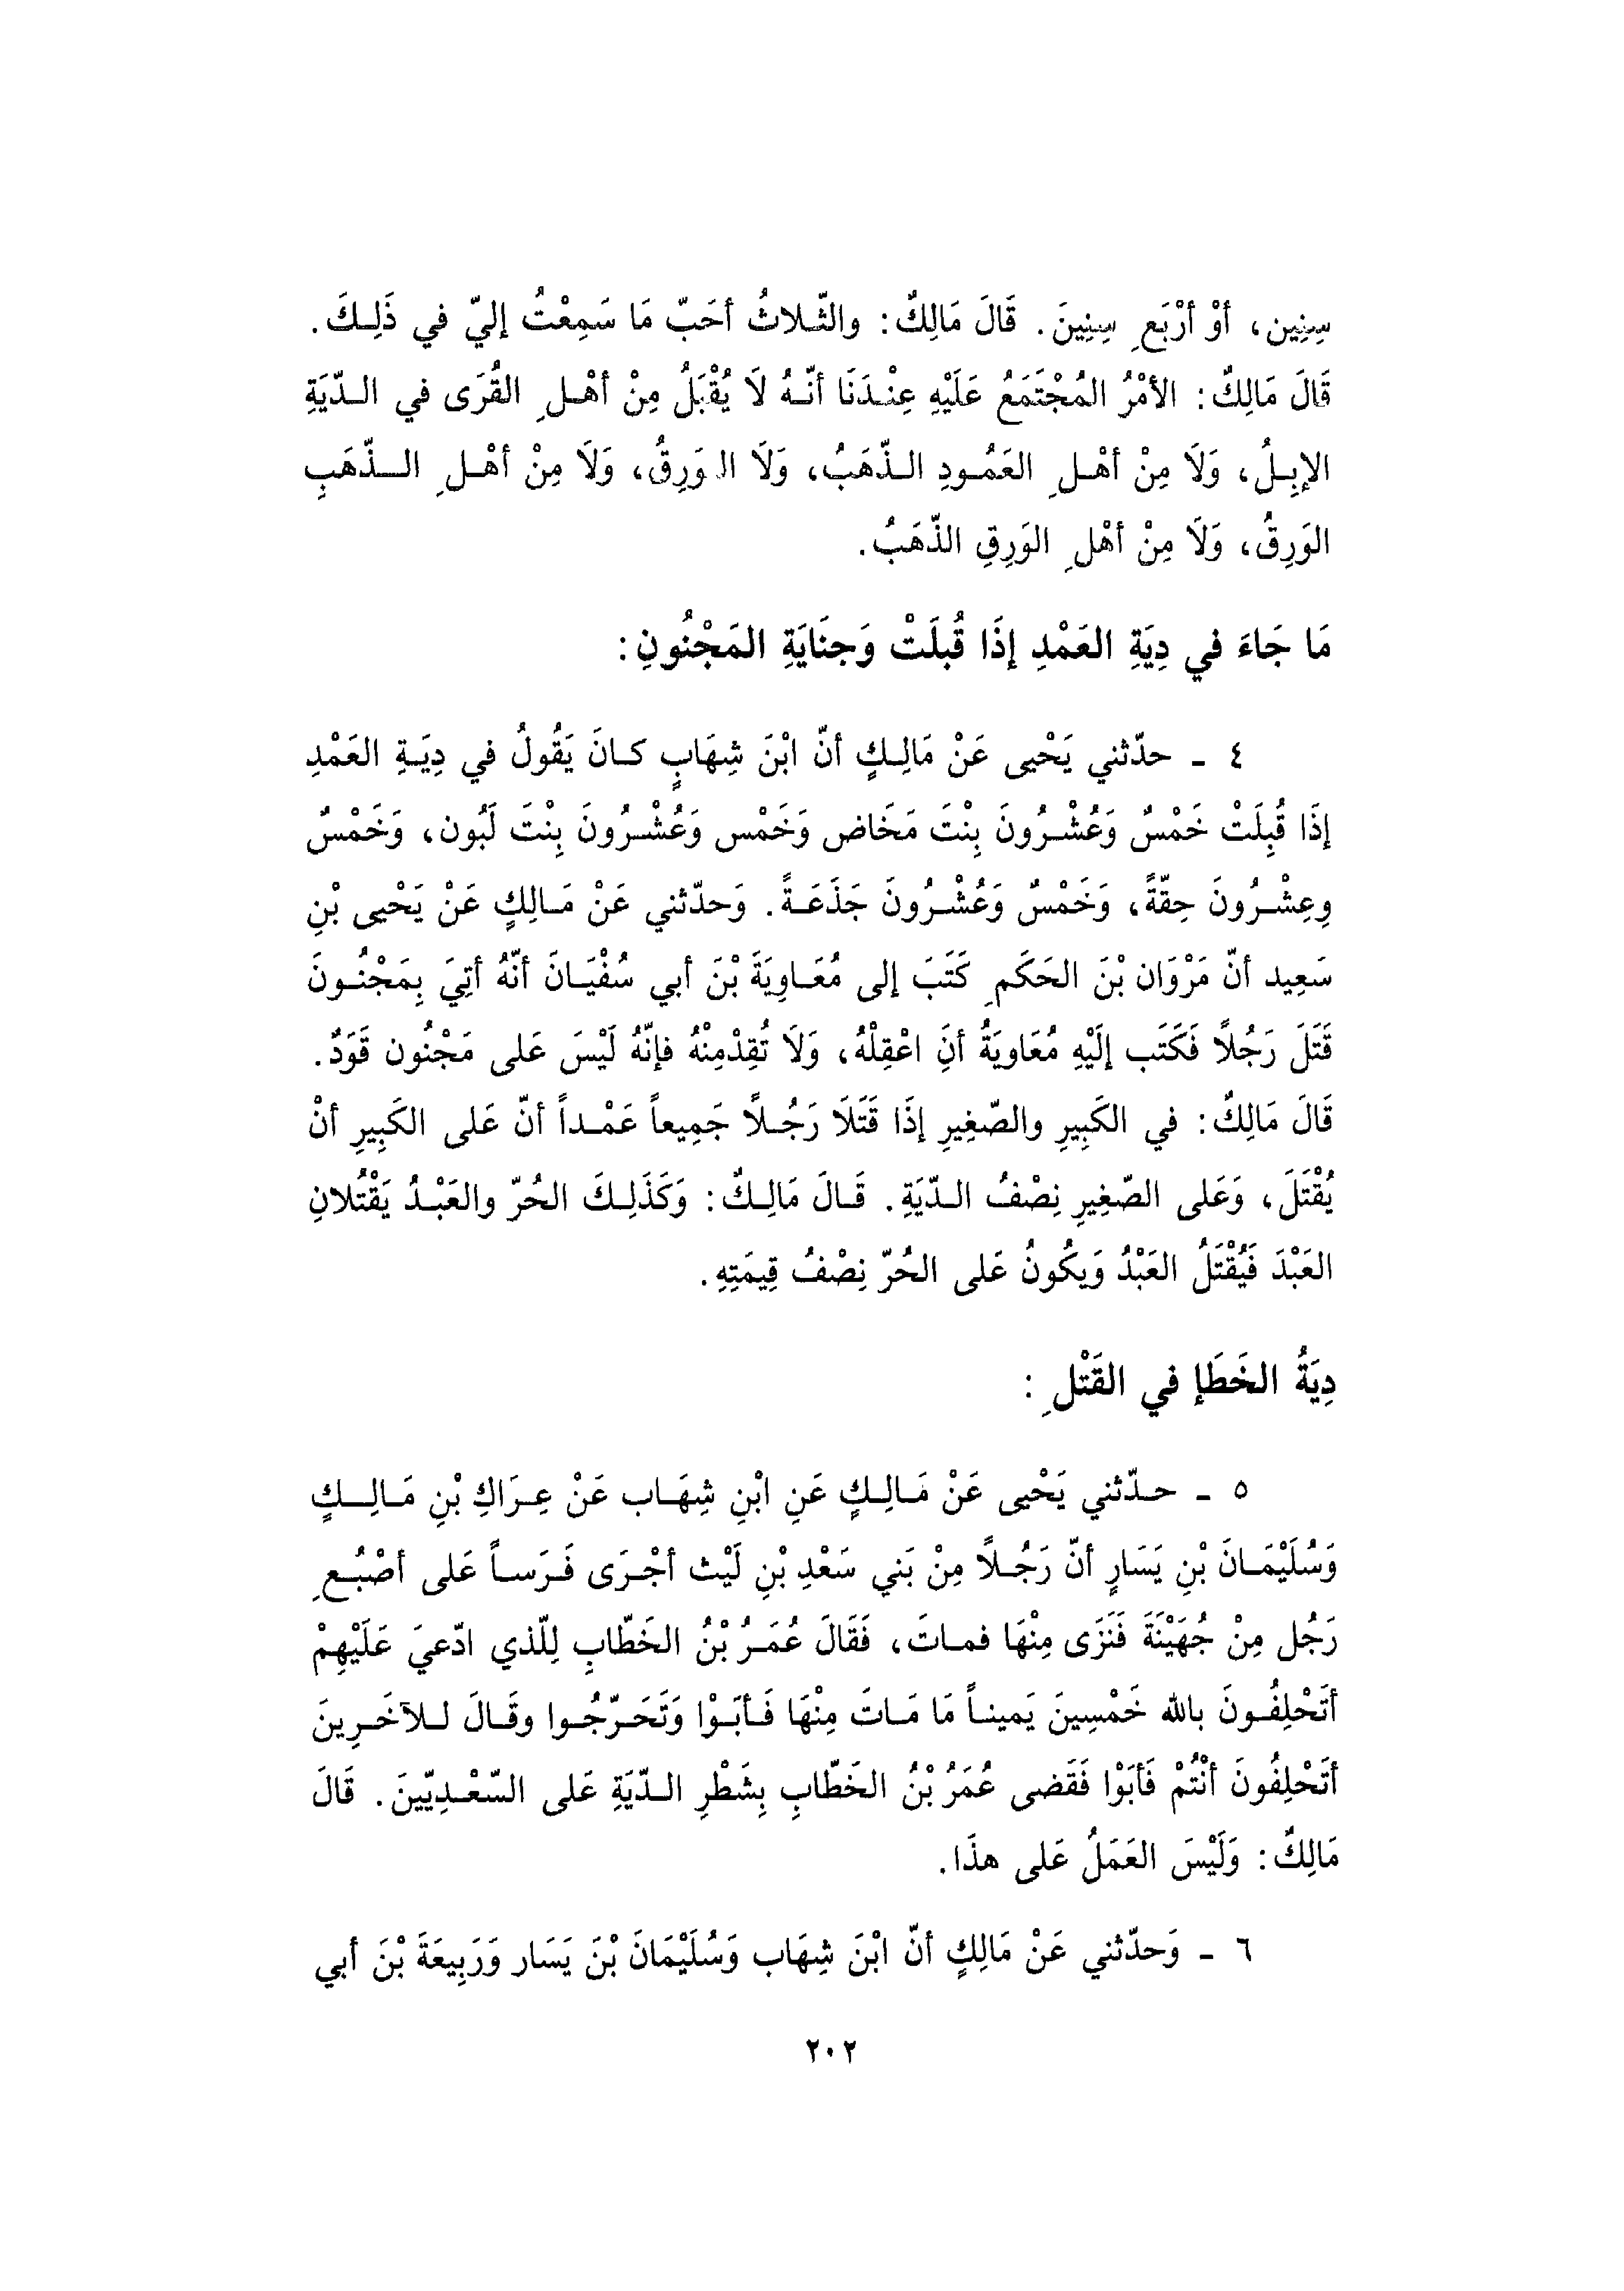 سِنِين، أوْ أرْبَعِ سِنِينَ. قَالَ مَالِكٌ: والثّلاثُ أحَبّ مَا سَمِعْتُ إليّ في ذَلِكَ.
قَالَ مَالِكٌ: الأمْرُ المُجْتَمَعُ عَلَيْهِ عِنْدَنَا أنّهُ لَا يُقْبَلُ مِنْ أهْلِ القُرَى في الدّيَةِ
الإبِلُ، وَلَا مِنْ أهْلِ العَمُودِ الذّهَبُ، وَلَا الوَرِقُ، وَلَا مِنْ أهْلِ الذّهَبِ
الوَرِقُ، وَلَا مِنْ أهْلِ الوَرِقِ الذّهَبُ.
مَا جَاءَ في دِيَةِ العَمْدِ إذَا قُبلَتْ وَجنَايَةِ المَجْنُونِ:
٤ - حدّثني يَحْيى عَنْ مَالِكٍ أنّ ابْنَ شِهَابٍ كانَ يَقُولُ في دِيَةِ العَمْدِ
إذَا قُبِلَتْ خَمْسٌ وَعُشْرُونَ بِنْتَ مَخَاض وَخَمْس وَعُشْرُونَ بِنْتَ لَبُون، وَخَمْسٌ
وِعِشْرُونَ حِقّةً، وَخَمْسٌ وَعُشْرُونَ جَذَعَةً. وَحدّثني عَنْ مَالِكٍ عَنْ يَحْيى بْنِ
سَعِيد أنّ مَرْوَان بْنَ الحَكَمِ كَتَبَ إلى مُعَاوِيَةَ بْنَ أبي سُفْيَانَ أنّهُ أتِيَ بِمَجْنُونَ
قَتَلَ رَجُلاً فَكَتَب إلَيْهِ مُعَاويَةُ أنِ اعْقِلْهُ، وَلَا تُقِدْمِنْهُ فإنّهُ لَيْسَ عَلى مَجْنُون قَوَدٌ.
قَالَ مَالِكٌ: في الكَبِيرِ والصّغِيرِ إذَا قَتَلَا رَجُلاً جَمِيعاً عَمْداً أنّ عَلى الكَبِيرِ أنْ
يُقْتَلَ، وَعَلى الصّغِيرِ نِصْفُ الدّيَةِ. قَالَ مَالِكٌ: وَكَذَلِكَ الحُرّ والعَبْدُ يَقْتُلانِ
العَبْدَ فَيُقْتَلُ العَبْدُ وَيكُونُ عَلى الحُرّ نِصْفُ قِيمَتِهِ.
دِيَةُ الخَطَإ في القَتْلِ:
٥ - حدّثني يَحْيى عَنْ مَالِكٍ عَنِ ابْنِ شِهَاب عَنْ عِرَاكِ بْنِ مَالِكٍ
وَسُلَيْمَانَ بْنِ يَسَارٍ أنّ رَجُلاً مِنْ بَني سَعْدِ بْنِ لَيْث أجْرَى فَرَساً عَلى أصْبُعِ
رَجُل مِنْ جُهَيْنَةَ فَنَزَى مِنْهَا فماتَ، فَقَالَ عُمَرُ بْنُ الخَطّابِ لِلّذي ادّعيَ عَلَيْهِمْ
أتَحْلِفُونَ بالله خَمْسِينَ يَميناً مَا مَاتَ مِنْهَا فَأبَوْا وَتَحَرّجُوا وقَالَ للآخَرِينَ
أتَحْلِفُونَ أنْتُمْ فَأبَوْا فَقَضى عُمَرُ بْنُ الخَطّابِ بِشَطْرِ الدّيَةِ عَلى السّعْدِيّينَ. قَالَ
مَالِكٌ: وَلَيْسَ العَمَلُ عَلى هذَا.
٦ - وَحدّثني عَنْ مَالِكٍ أنّ ابْنَ شِهَاب وَسُلَيْمَانَ بْنَ يَسَار وَرَبِيعَةَ بْنَ أبي
٢٠٢